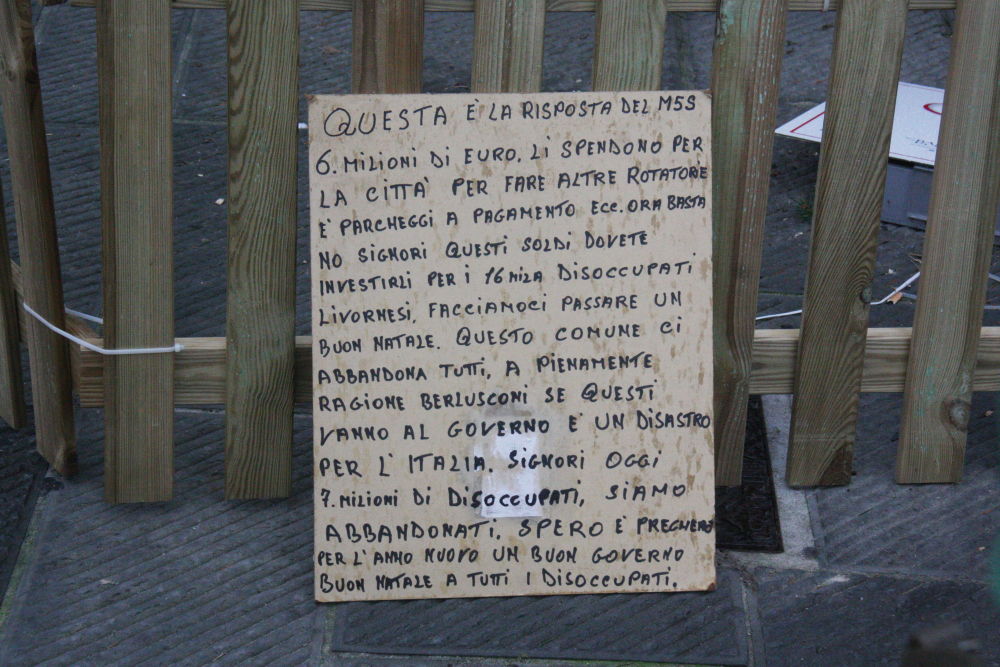 QUESTA È LA RISPOSTA DEL M5S
6. MILIONI DI EURO. LI SPENDONO PER
LA CITTÀ PER FARE ALTRE ROTATORÈ
È PARCHEGGI A PAGAMENTO ECC. ORA BASTA
NO SIGNORI QUESTI SOLDI DOVETE
INVESTIRLI PER I 16 MILA DISOCCUPATI
LIVORNESI, FACCIAMOCI PASSARE UN
BUON NATALE. QUESTO COMUNE CI
ABBANDONA TUTTI, A PIENAMENTE
RAGIONE BERLUSCONI SE QUESTI
VANNO AL GOVERNO È UN DISASTRO
PER L'ITALIA. SIGNORI OGGI
7. MILIONI DI DISOCCUPATI, SIAMO
ABBANDONATI. SPERO E PREGHERÒ
PER L'ANNO NUOVO UN BUON GOVERNO
BUON NATALE A TUTTI I DISOCCUPATI.